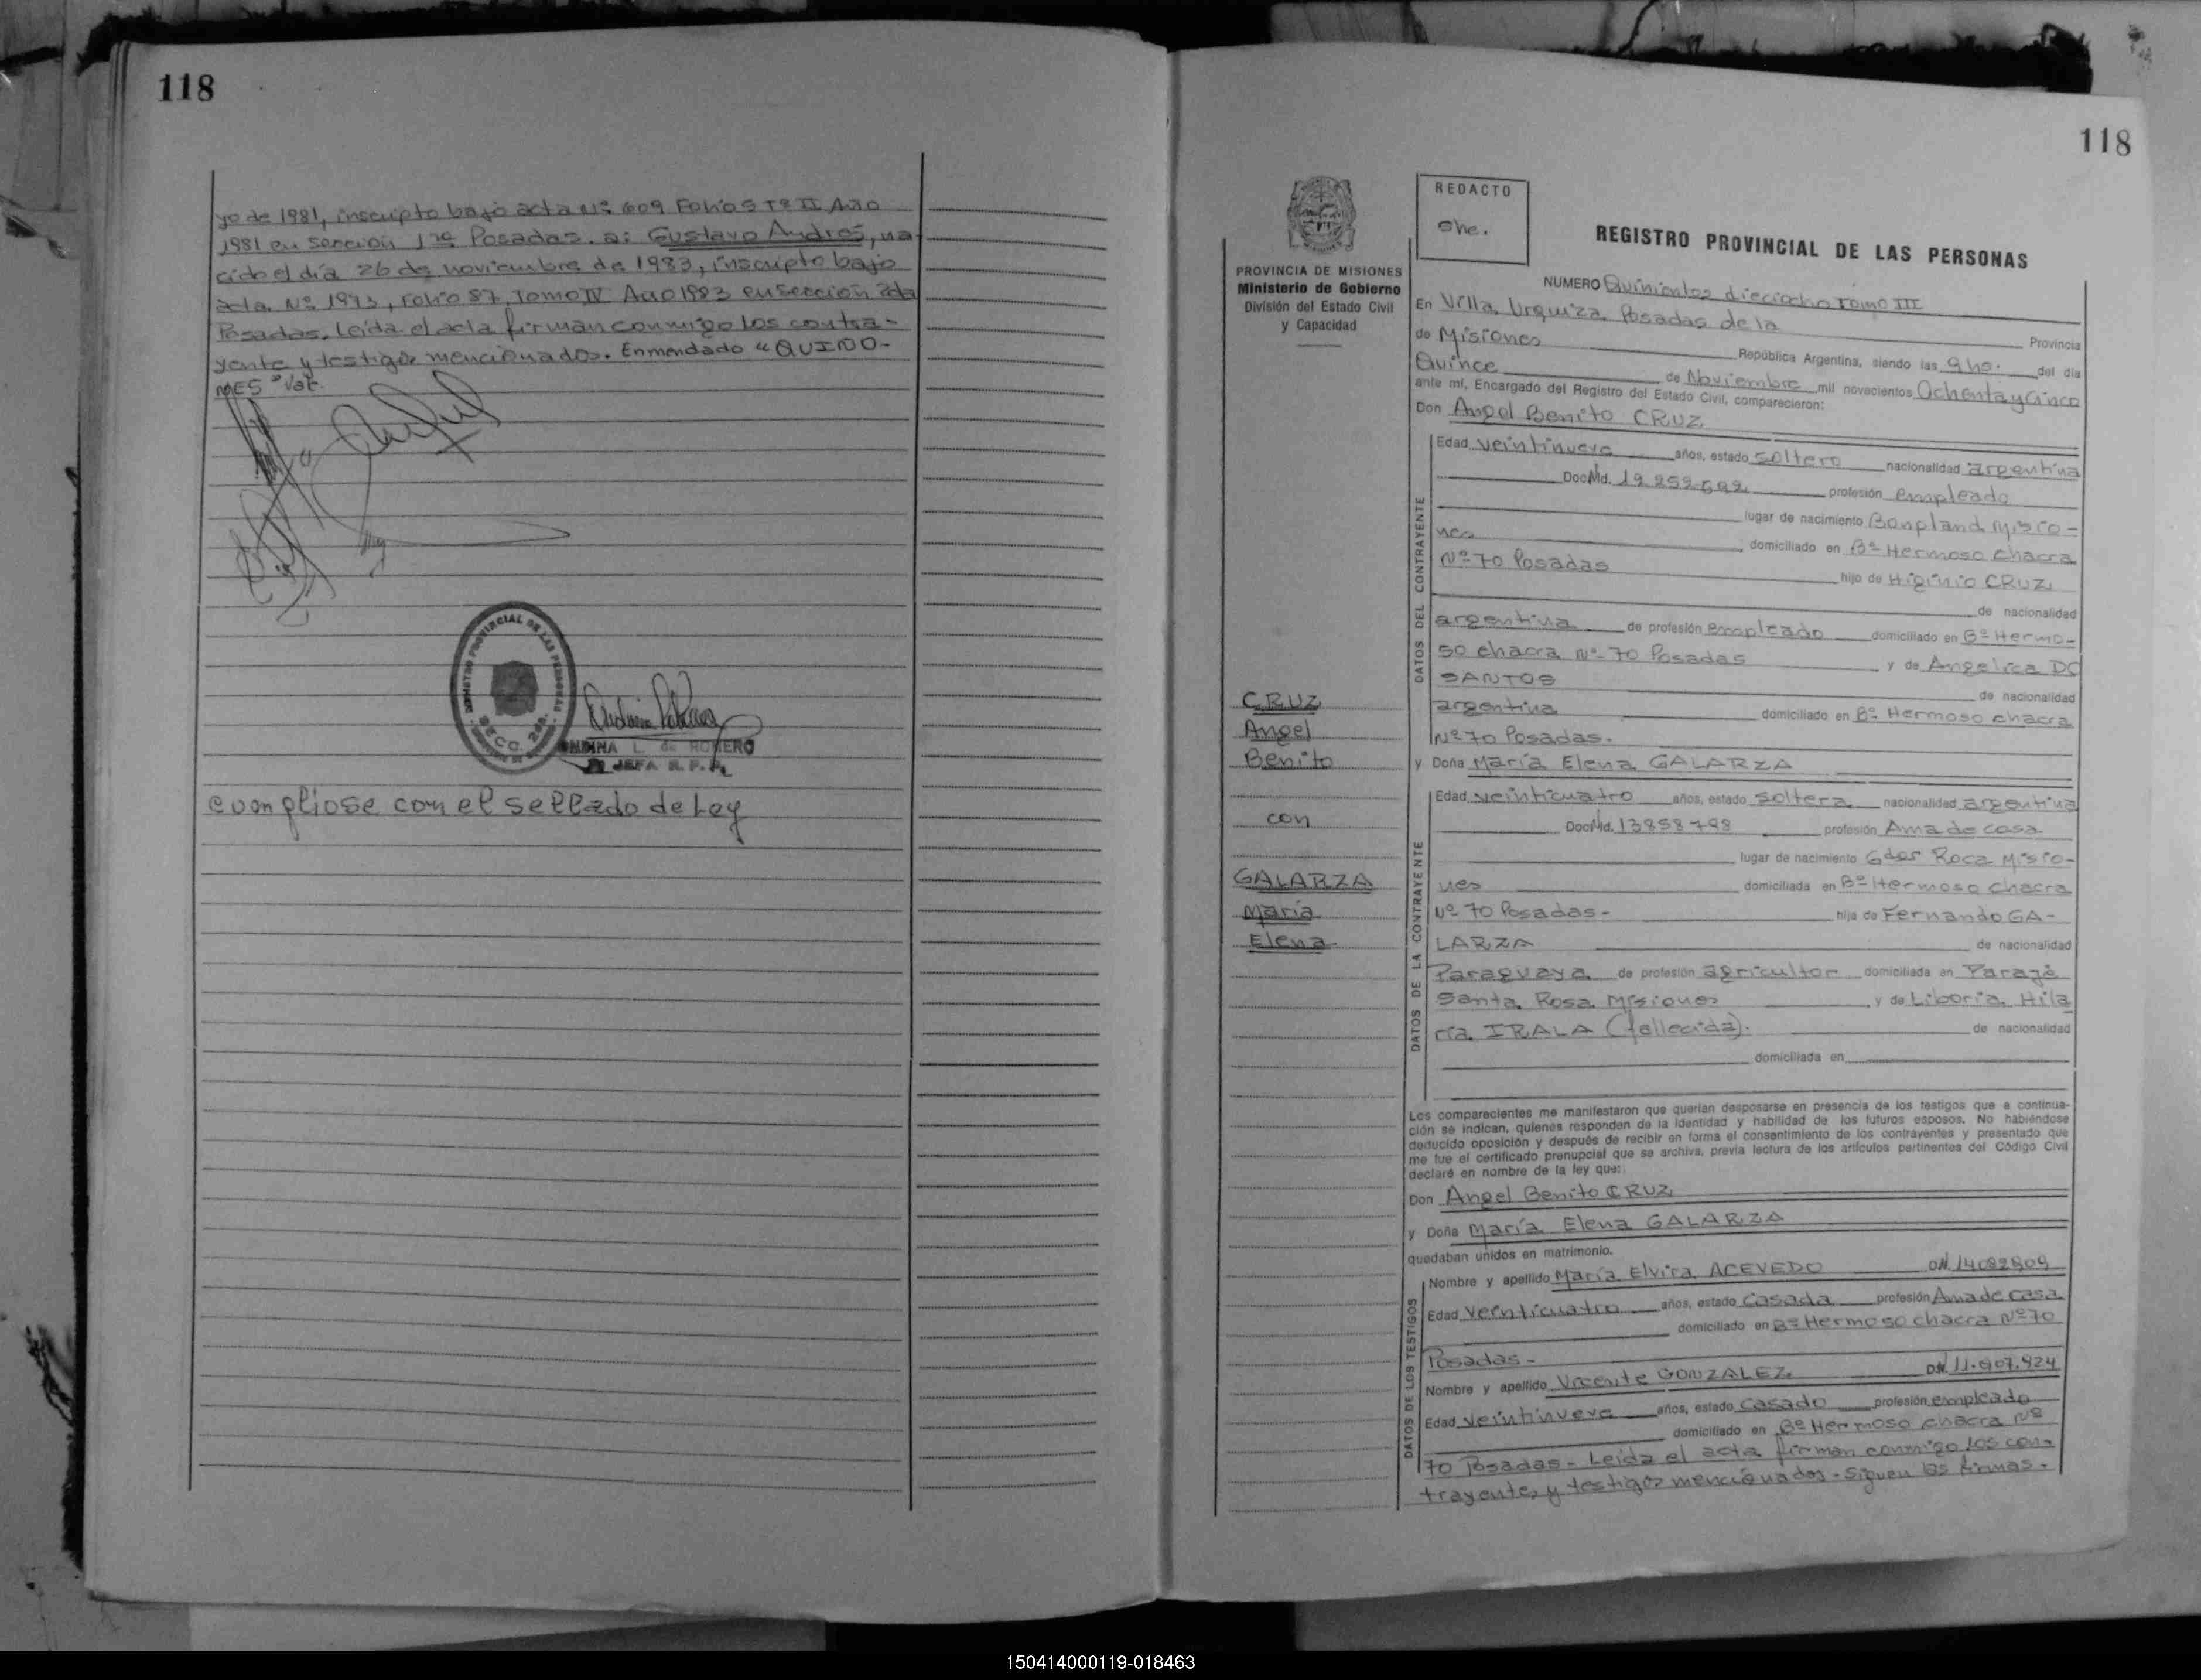 118
yo de 1981, inscripto bajo acta Nº 609 Folio 9 Tº II Año
1981 en Sección 1ra Posadas. a: Gustavo Andres, na
cido el día 26 de noviembre de 1983, inscripto bajo
acta Nº 1973, Folio 87, Tomo IV Año 1983 en Sección 2da
Posadas. Leída el acta firman conmigo los contra-
yente y testigos mencionados. Enmendado "QUIÑO-
NES" Vale.
REGISTRO PROVINCIAL DE LAS PERSONAS
SECC. 2da.
ONDINA L. de ROMERO
JEFA R. P. P.
cumpliose con el sellado de Ley
118
REDACTO
she.
REGISTRO PROVINCIAL DE LAS PERSONAS
PROVINCIA DE MISIONES
Ministerio de Gobierno
División del Estado Civil
y Capacidad
CRUZ
Angel
Benito
con
GALARZA
María
Elena
NUMERO Quinientos dieciocho Tomo III
En Villa Urquiza Posadas de la Provincia
de Misiones República Argentina, siendo las 9 hs. del día
Quince de Noviembre mil novecientos Ochenta y Cinco
ante mí, Encargado del Registro del Estado Civil, comparecieron:
Don Angel Benito CRUZ
DATOS DEL CONTRAYENTE
Edad veintinueve años, estado soltero nacionalidad argentina
Doc. Nd. 12.252.592 profesión empleado
lugar de nacimiento Bonpland Misio-
nes domiciliado en Bº Hermoso chacra
Nº 70 Posadas hijo de Higinio CRUZ
de nacionalidad
argentina de profesión empleado domiciliado en Bº Hermo-
so chacra Nº 70 Posadas y de Angelica DO
SANTOS de nacionalidad
argentina domiciliado en Bº Hermoso chacra
Nº 70 Posadas.
y Doña María Elena GALARZA
DATOS DE LA CONTRAYENTE
Edad veinticuatro años, estado soltera nacionalidad argentina
Doc. Nd. 13858798 profesión Ama de casa
lugar de nacimiento Gdor Roca Misio-
nes domiciliada en Bº Hermoso chacra
Nº 70 Posadas- hija de Fernando GA-
LARZA de nacionalidad
Paraguaya de profesión agricultor domiciliada en Paraje
Santa Rosa Misiones y de Liboria Hila
ria IRALA (fallecida). de nacionalidad
domiciliada en
Los comparecientes me manifestaron que querían desposarse en presencia de los testigos que a continua-
ción se indican, quienes responden de la identidad y habilidad de los futuros esposos. No habiéndose
deducido oposición y después de recibir en forma el consentimiento de los contrayentes y presentado que
me fue el certificado prenupcial que se archiva, previa lectura de los artículos pertinentes del Código Civil
declaré en nombre de la ley que:
Don Angel Benito CRUZ
y Doña María Elena GALARZA
quedaban unidos en matrimonio.
DATOS DE LOS TESTIGOS
Nombre y apellido María Elvira ACEVEDO DNI. 14082809
Edad Veinticuatro años, estado Casada profesión Ama de casa
domiciliado en Bº Hermoso chacra Nº 70
Posadas-
Nombre y apellido Vicente GONZALEZ DNI. 11.907.924
Edad Veintinueve años, estado Casado profesión empleado
domiciliado en Bº Hermoso chacra Nº
70 Posadas- Leída el acta firman conmigo los con-
trayentes y testigos mencionados- Siguen las firmas.
150414000119-018463